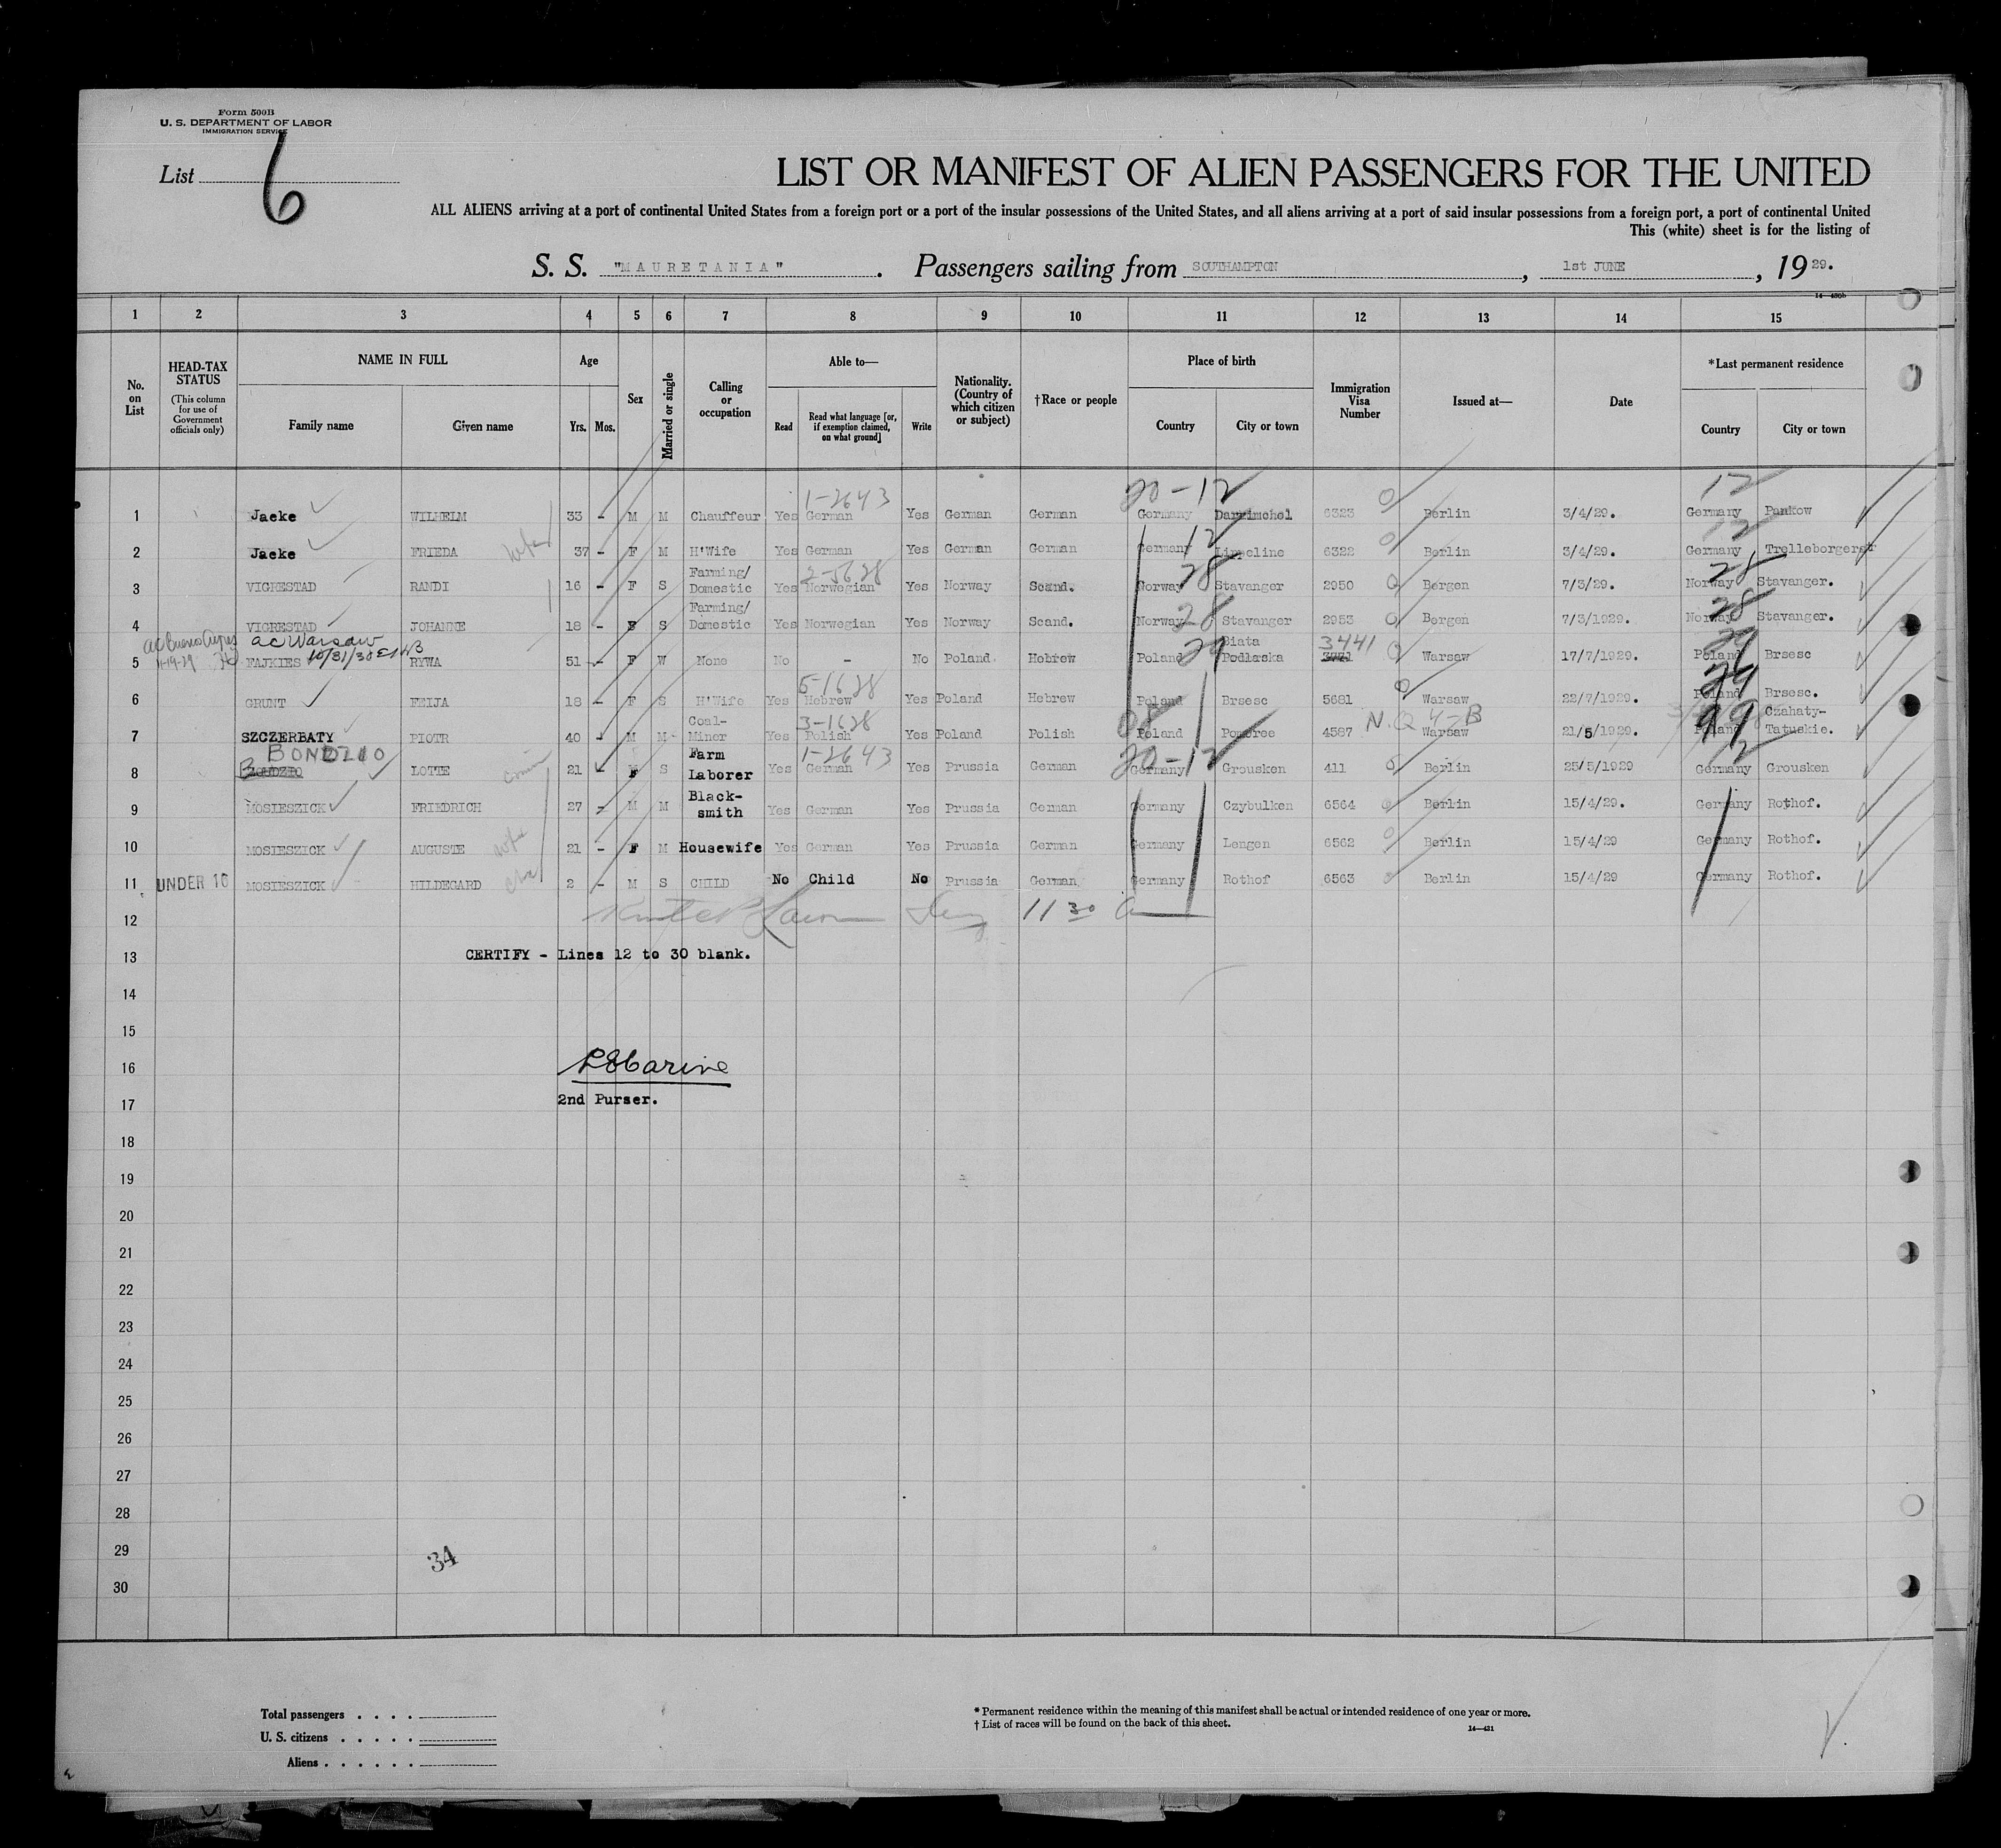 Form 500B
U. S. DEPARTMENT OF LABOR
IMMIGRATION SERVICE
List 6
LIST OR MANIFEST OF ALIEN PASSENGERS FOR THE UNITED
ALL ALIENS arriving at a port of continental United States from a foreign port or a port of the insular possessions of the United States, and all aliens arriving at a port of said insular possessions from a foreign port, a port of continental United
This (white) sheet is for the listing of
S. S. "MAURETANIA". Passengers sailing from SOUTHAMPTON, 1st JUNE, 1929.
1 2 3 4 5 6 7 8 9 10 11 12 13 14 15
No. on List
HEAD-TAX STATUS (This column for use of Government officials only)
NAME IN FULL Family name Given name
Age Yrs. Mos.
Sex
Married or single
Calling or occupation
Able to— Read Read what language [or, if exemption claimed, on what ground] Write
Nationality. (Country of which citizen or subject)
†Race or people
Place of birth Country City or town
Immigration Visa Number
Issued at—
Date
*Last permanent residence Country City or town
1-2643 20-12 12
1 Jaeke WILHELM 33 - M M Chauffeur Yes German Yes German German Germany 6323 Berlin 3/4/29. Germany Pankow
12 12
2 Jaeke FRIEDA wife 37 - F M H'Wife Yes German Yes German German Germany 6322 Berlin 3/4/29. Germany Trelleborgerstr
2-5628 28 28
3 VIGRESTAD RANDI 16 - F S Farming/ Domestic Yes Norwegian Yes Norway Scand. Norway Stavanger 2950 Bergen 7/3/29. Norway Stavanger.
28 28
4 VIGRESTAD JOHANNE 18 - F S Farming/ Domestic Yes Norwegian Yes Norway Scand. Norway Stavanger 2953 Bergen 7/3/1929. Norway Stavanger.
ac Buenos Aires 11-19-29 ac Warsaw 10/31/30 29 3441 29
5 FAJKIES RYWA 51 - F W None No - No Poland. Hebrew Poland Biata Podlaska 3771 Warsaw 17/7/1929. Poland Brsesc
5-1628 29
6 GRUNT FEIJA 18 - F S H'Wife Yes Hebrew Yes Poland Hebrew Poland Brsesc 5681 Warsaw 22/7/1929. Poland Brsesc.
3-1628 N.Q 4-B 99
7 SZCZERBATY PIOTR 40 - M M Coal-Miner Yes Polish Yes Poland Polish Poland 4587 Warsaw 21/5/1929. Poland Czahaty-Tatuskie.
BONDZIO 1-2643 20-12 12
8 LOTTE 21 F S Farm Laborer Yes German Yes Prussia German Germany Grousken 411 Berlin 25/5/1929 Germany Grousken
9 MOSIESZICK FRIEDRICH 27 - M M Black-smith Yes German Yes Prussia German Germany Czybulken 6564 Berlin 15/4/29. Germany Rothof.
10 MOSIESZICK AUGUSTE wife 21 - F M Housewife Yes German Yes Prussia German Germany Lengen 6562 Berlin 15/4/29 Germany Rothof.
11 UNDER 16 MOSIESZICK HILDEGARD 2 - M S CHILD No Child No Prussia German Germany Rothof 6563 Berlin 15/4/29 Germany Rothof.
12 11 30
13 CERTIFY - Lines 12 to 30 blank.
14
15
16
17 2nd Purser.
18
19
20
21
22
23
24
25
26
27
28
29 34
30
Total passengers . . . .
U. S. citizens . . . . .
Aliens . . . . . .
* Permanent residence within the meaning of this manifest shall be actual or intended residence of one year or more.
† List of races will be found on the back of this sheet.
14—431